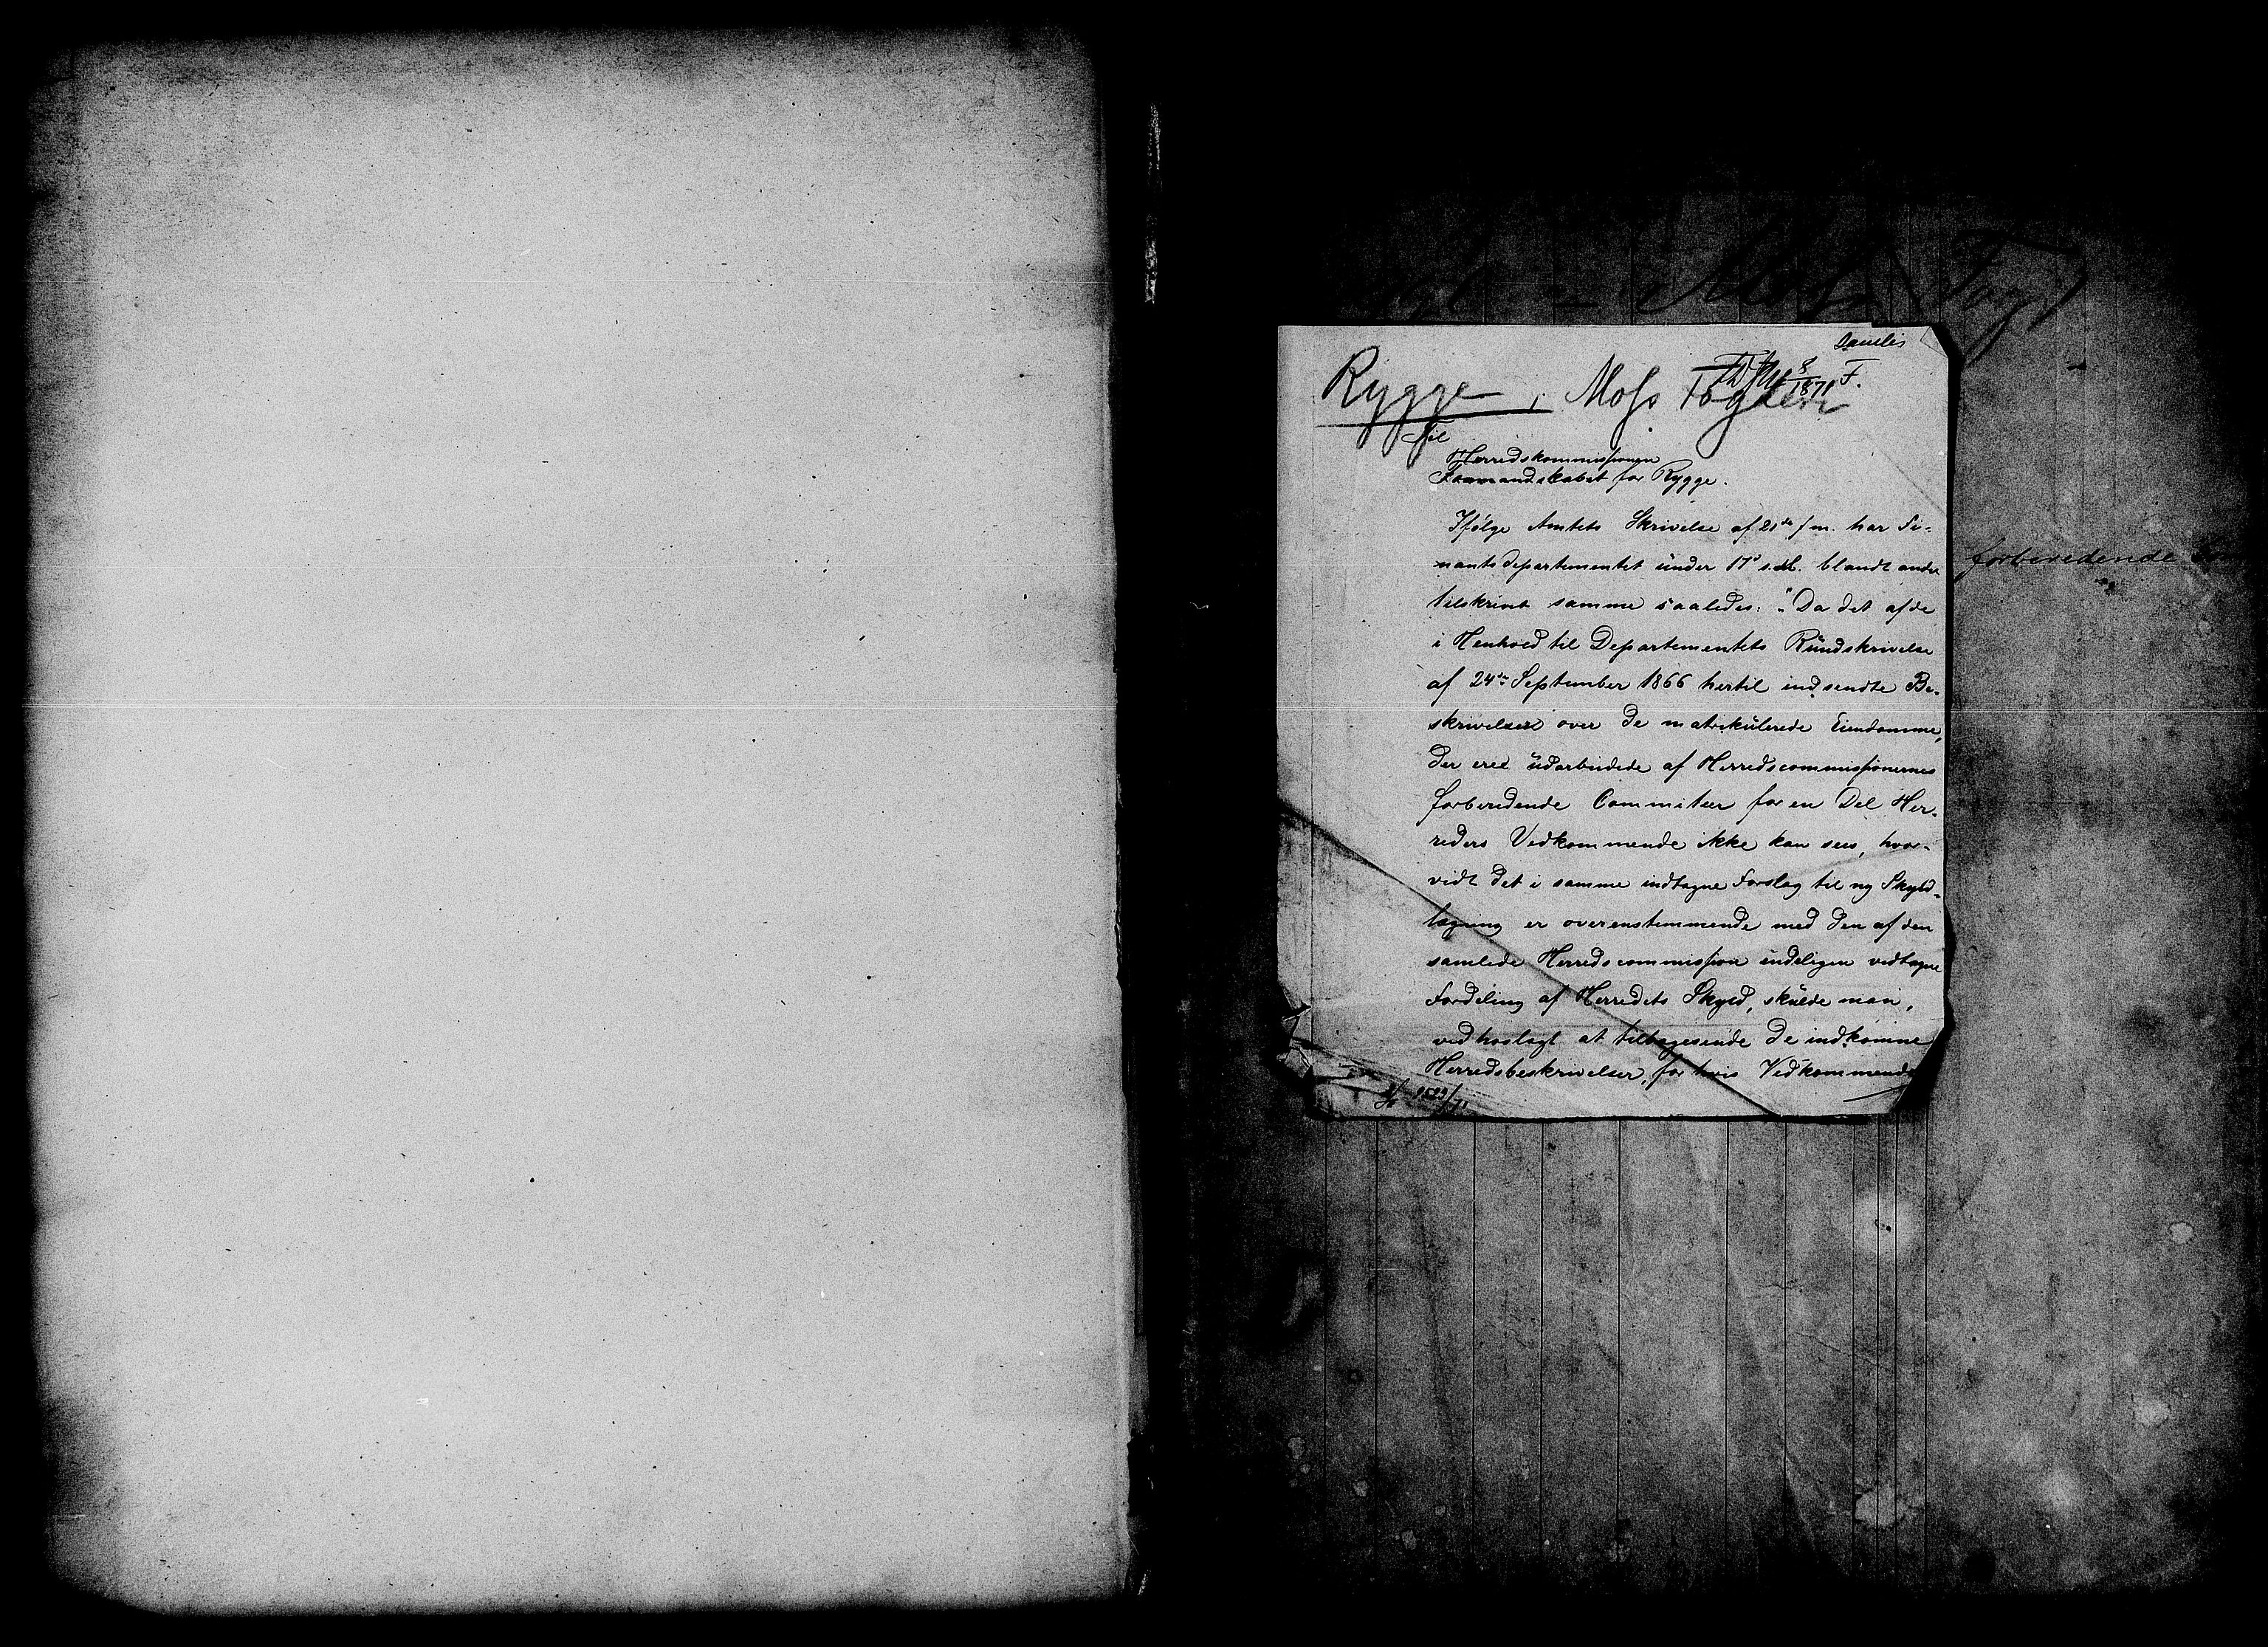 Moss Fog
forberedende
Rygge i Moss Fogderi
8/1871 F.
Til
Herredskommissionen
Formandskabet for Rygge.
Ifølge Amtets Skrivelse af 21de f. m. har Fi-
nantsdepartementet under 17d s. M. blandt andet
tilskrevet samme saaledes: "Da det af de
i Henhold til Departementets Rundskrivelse
af 24de September 1866 hertil indsendte Be-
skrivelser over de matrikulerede Eiendomme,
der ere udarbeidede af Herredscommissionernes
forberedende Commiteer for en Del Her-
reders Vedkommende ikke kan sees, hvor-
vidt det i samme indtagne Forslag til ny Skyld-
lægning er overensstemmende med den af den
samlede Herredscommission endeligen vedtagne
Fordeling af Herredets Skyld, skulde man,
ved hoslagt at tilbagesende de indkomne
Herredsbeskrivelser, for hvis Vedkommende